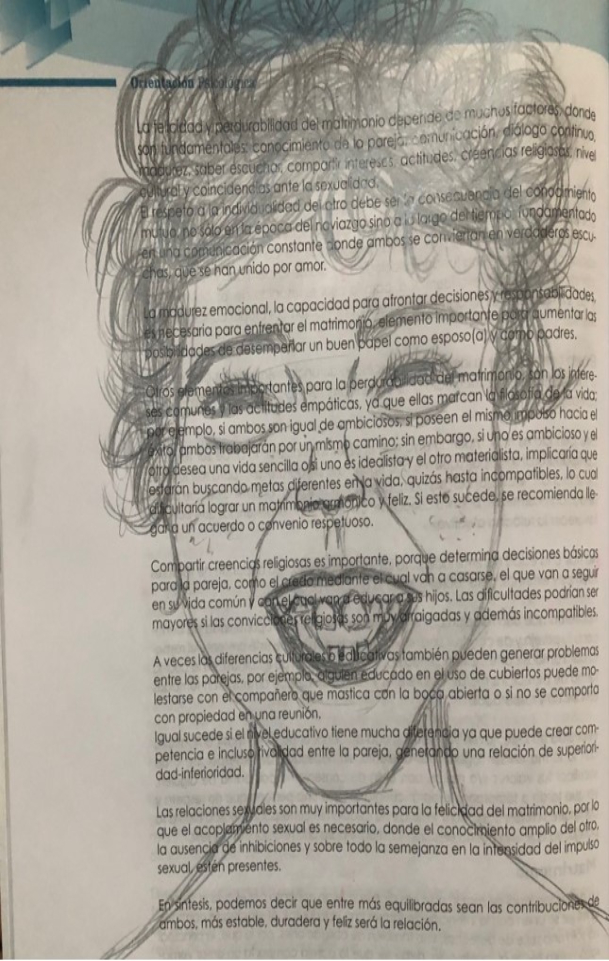 Orientación Psicológica
La felicidad y perdurabilidad del matrimonio depende de muchos factores, donde
son fundamentales: conocimiento de la pareja, comunicación, diálogo continuo,
madurez, saber escuchar, compartir intereses, actitudes, creencias religiosas, nivel
cultural y coincidencias ante la sexualidad.
El respeto a la individualidad del otro debe ser la consecuencia del conocimiento
mutuo, no sólo en la época del noviazgo sino a lo largo del tiempo, fundamentado
en una comunicación constante donde ambos se conviertan en verdaderos escu-
chas, que se han unido por amor.
La madurez emocional, la capacidad para afrontar decisiones y responsabilidades,
es necesaria para enfrentar el matrimonio, elemento importante para aumentar las
posibilidades de desempeñar un buen papel como esposo(a) y como padres.
Otros elementos importantes para la perdurabilidad del matrimonio, son los intere-
ses comunes y las actitudes empáticas, ya que ellas marcan la filosofía de la vida;
por ejemplo, si ambos son igual de ambiciosos, si poseen el mismo impulso hacia el
éxito, ambos trabajarán por un mismo camino; sin embargo, si uno es ambicioso y el
otro desea una vida sencilla o si uno es idealista y el otro materialista, implicaría que
estarán buscando metas diferentes en la vida, quizás hasta incompatibles, lo cual
dificultaría lograr un matrimonio armónico y feliz. Si esto sucede, se recomienda lle-
gar a un acuerdo o convenio respetuoso.
Compartir creencias religiosas es importante, porque determina decisiones básicas
para la pareja, como el credo mediante el cual van a casarse, el que van a seguir
en su vida común y con el cual van a educar a sus hijos. Las dificultades podrían ser
mayores si las convicciones religiosas son muy arraigadas y además incompatibles.
A veces las diferencias culturales o educativas también pueden generar problemas
entre las parejas, por ejemplo, alguien educado en el uso de cubiertos puede mo-
lestarse con el compañero que mastica con la boca abierta o si no se comporta
con propiedad en una reunión.
Igual sucede si el nivel educativo tiene mucha diferencia ya que puede crear com-
petencia e incluso rivalidad entre la pareja, generando una relación de superiori-
dad-inferioridad.
Las relaciones sexuales son muy importantes para la felicidad del matrimonio, por lo
que el acoplamiento sexual es necesario, donde el conocimiento amplio del otro,
la ausencia de inhibiciones y sobre todo la semejanza en la intensidad del impulso
sexual, estén presentes.
En síntesis, podemos decir que entre más equilibradas sean las contribuciones de
ambos, más estable, duradera y feliz será la relación.